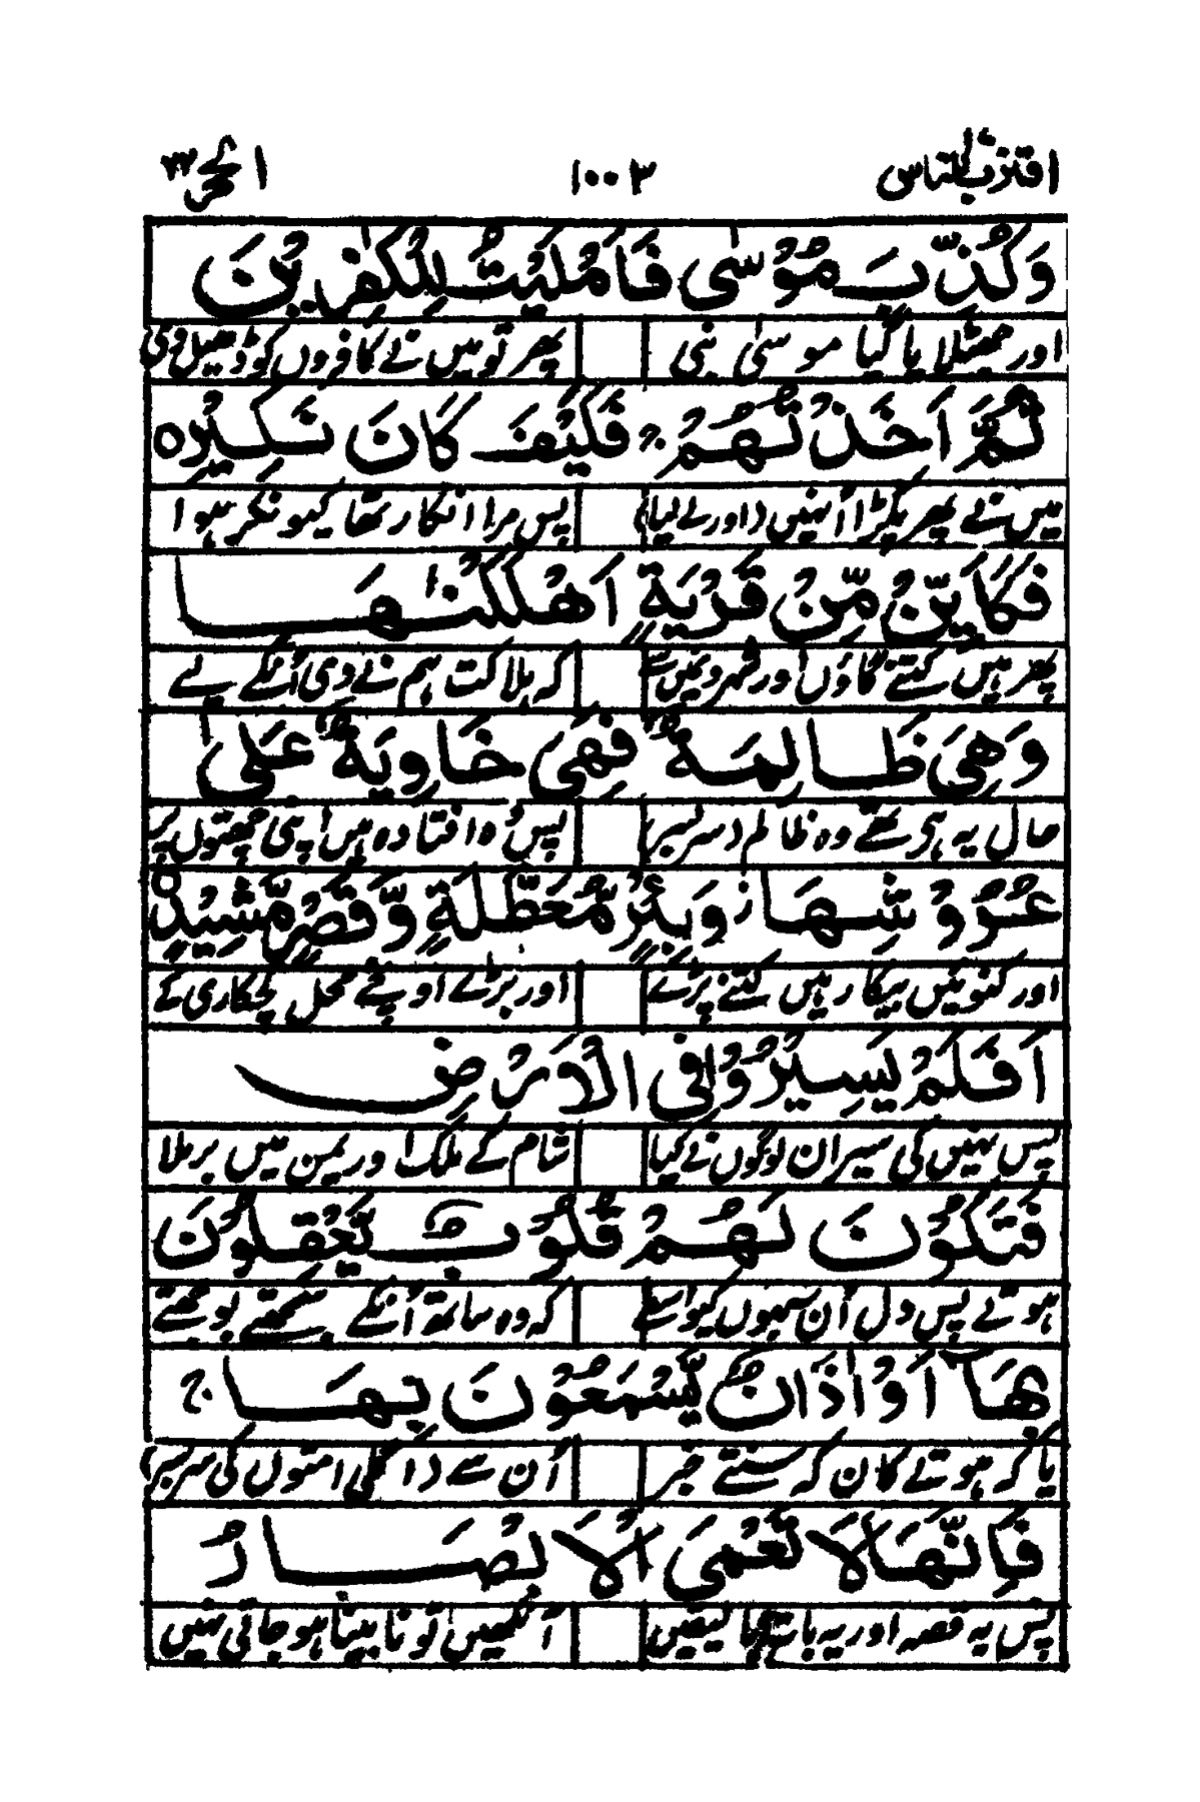 اقترب للناس ۱۰۰۳ الحج ۲۲
وَكُذِّبَ مُوْسٰى فَاَمْلَيْتُ لِلْكٰفِرِيْنَ
اور جھٹلایا گیا موسیٰ نبی پھر تو میں نے کافروں کو ڈھیل دی
ثُمَّ اَخَذْتُهُمْ ۚ فَكَيْفَ كَانَ نَكِيْرِ ○
میں نے پھر پکڑا اُنہیں (اور لے لیا) پس مرا انکار تھا کیونکر ہوا
فَكَاَيِّنْ مِّنْ قَرْيَةٍ اَهْلَكْنٰهَا
پھر ہیں کتنے گاؤں اور شہر وئیں سے کہ ہلاکت ہم نے دی اُنکے لیے
وَهِيَ ظَالِمَةٌ فَهِيَ خَاوِيَةٌ عَلٰى
حال یہ ہی تھے وہ ظالم (سر بسر) پس وہ افتادہ ہیں اپنی چھتوں پر
عُرُوْشِهَا ز وَبِئْرٍ مُّعَطَّلَةٍ وَّقَصْرٍ مَّشِيْدٍ
اور کنوئیں بیکار ہیں کتنے پڑے اور بڑے اونچے محل گچکاری کے
اَفَلَمْ يَسِيْرُوْا فِى الْاَرْضِ
پس نہیں کی سیر ان لوگوں نے کیا شام کے ملک اور یمن میں برملا
فَتَكُوْنَ لَهُمْ قُلُوْبٌ يَّعْقِلُوْنَ
ہوتے پس دل اُن سبھوں کیواسطے کہ وہ ساتھ اُنکے سمجھتے بوجھتے
بِهَاۤ اَوْ اٰذَانٌ يَّسْمَعُوْنَ بِهَا ج
یا کہ ہوتے کان کہ سنتے خبر اُن سے (اگلی امتوں کی سر بسر)
فَاِنَّهَا لَا تَعْمَى الْاَبْصَارُ
پس یہ قصہ اور یہ بات ہے بالیقیں آنکھیں تو نابینا ہو جاتی نہیں